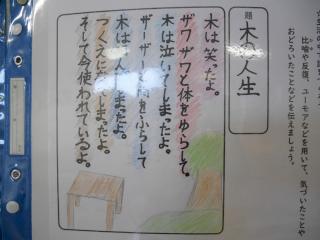 比喩や反復、ユーモアなどを用いて、気づいたことや
おどろいたことなどを伝えましょう。
題
木の人生
木は笑ったよ。
ザワザワと体をゆらして。
木は泣いてしまったよ。
ザーザーと雨をふらして
木は
人
しまったよ。
つくえに
しまったよ。
そして今使われているよ。